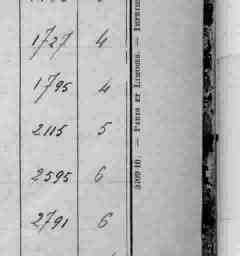 1727 4
1795 4
2115 5
2595 6
2791 6
5209 10. — PARIS ET LIMOGES. —